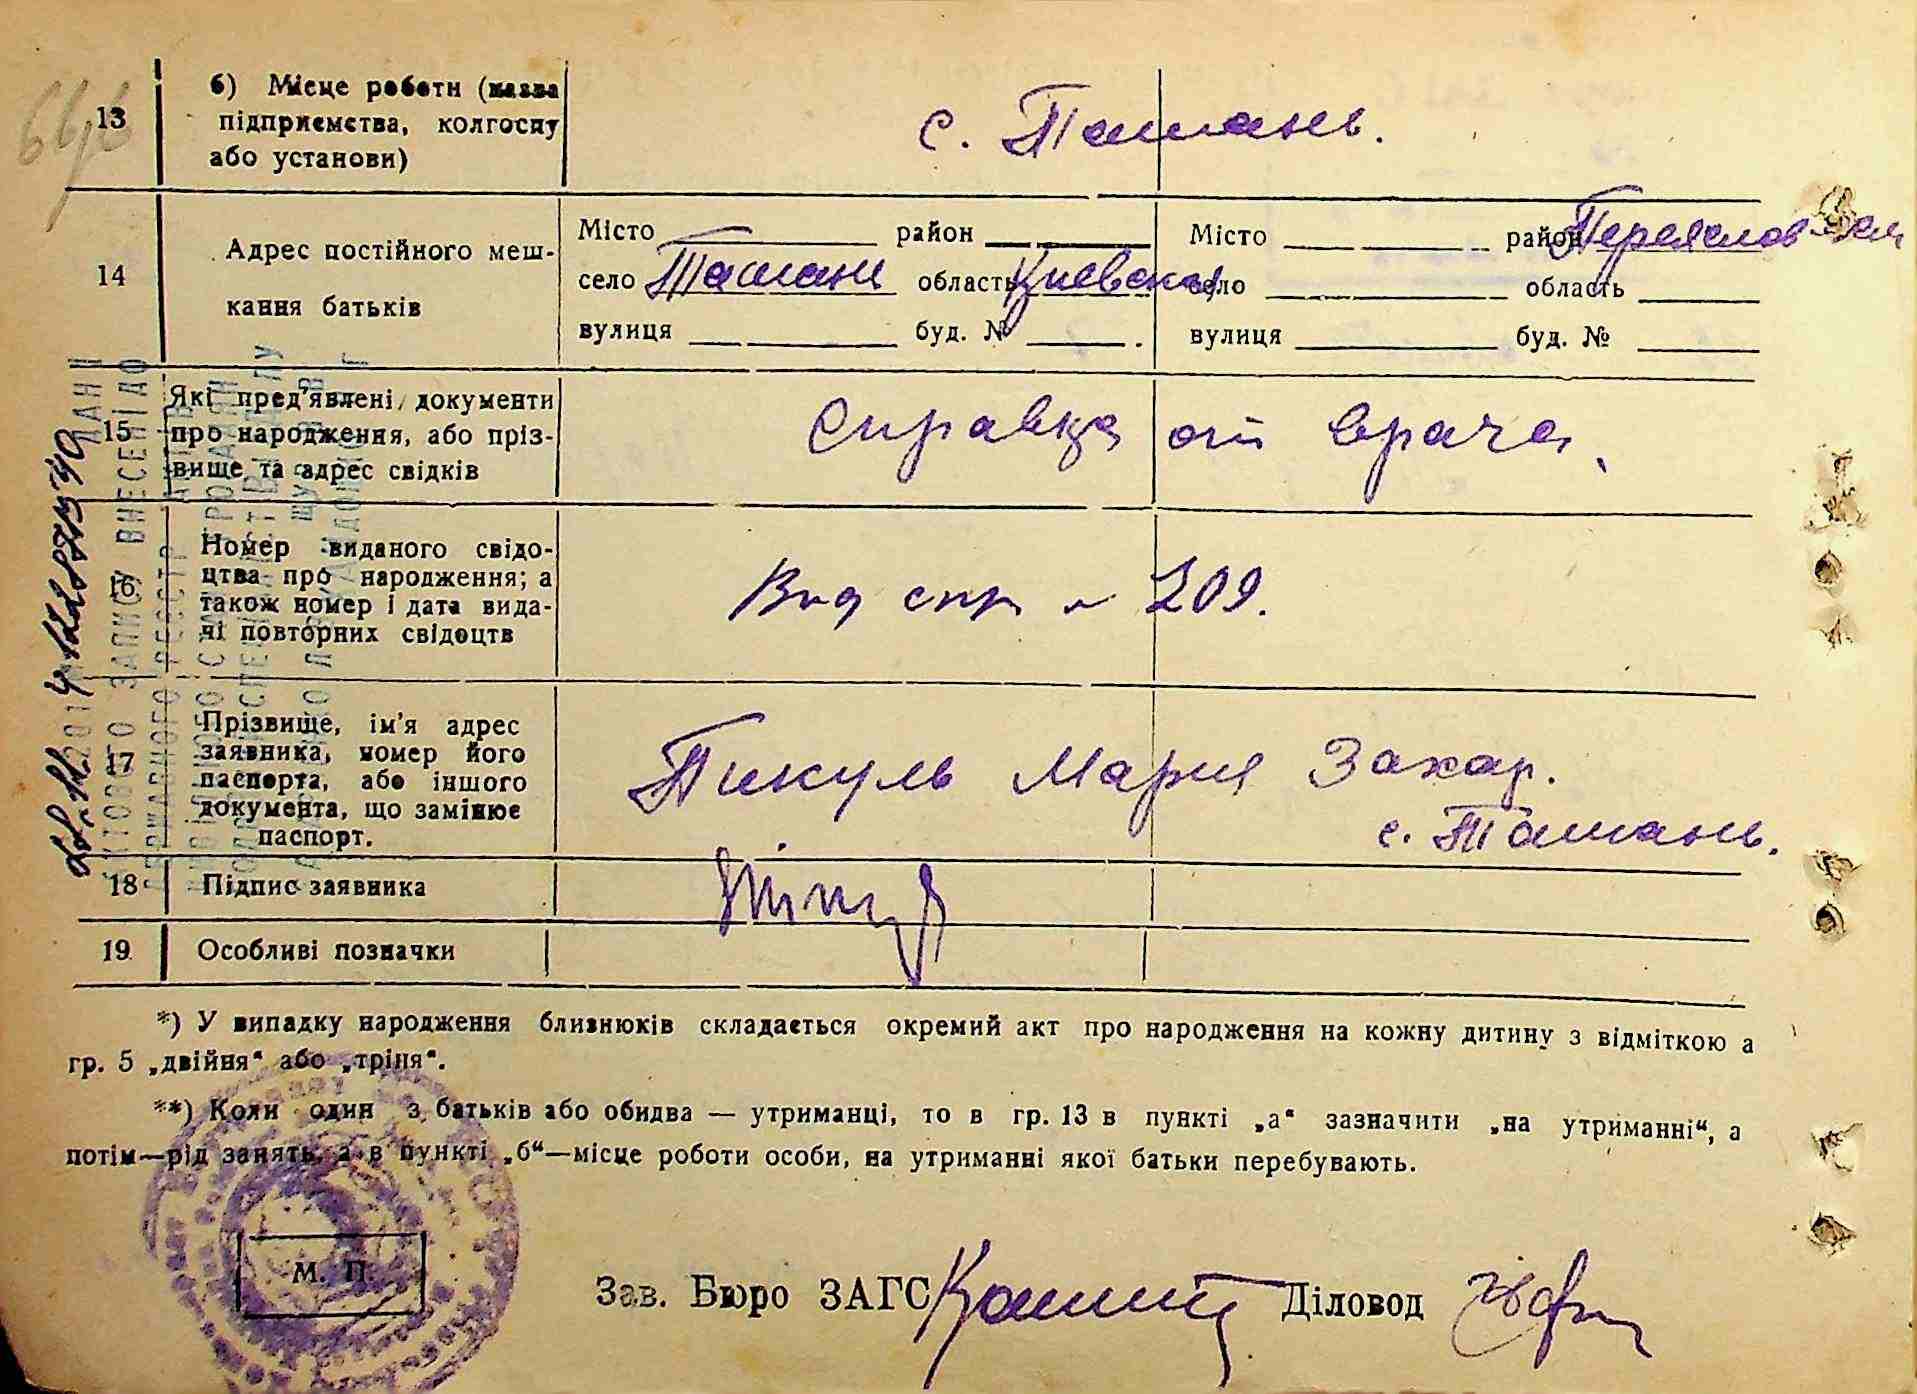 13
б) Місце роботи (назва
підприємства, колгоспу
або установи)
с. Ташань.
14
Адрес постійного меш-
кання батьків
Місто район
село Ташань область Киевская
вулиця буд. №
Місто район Переяслов
село область
вулиця буд. №
15
Які пред'явлені документи
про народження, або пріз-
вище та адрес свідків
Справка от врача.
16
Номер виданого свідо-
цтва про народження; а
також номер і дата вида-
чі повторних свідоцтв
Выд спр № 209.
17
Прізвище, ім'я адрес
заявника, номер його
паспорта, або іншого
документа, що замінює
паспорт.
Пикуль Мария Захар.
с. Ташань.
18
Підпис заявника
19
Особливі позначки
*) У випадку народження близнюків складається окремий акт про народження на кожну дитину з відміткою а
гр. 5 „двійня" або „тріпя".
**) Коли один з батьків або обидва — утриманці, то в гр. 13 в пункті „а" зазначити „на утриманні", а
потім—рід занять, а в пункті „б"—місце роботи особи, на утриманні якої батьки перебувають.
М. П.
Зав. Бюро ЗАГС Діловод